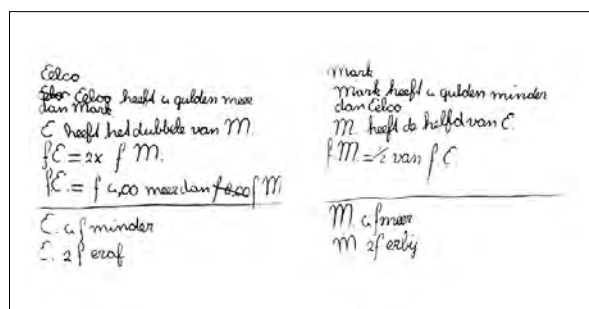 Eelco
Eelco heeft 4 gulden meer
dan Mark
E heeft het dubbele van M.
fE = 2x f M.
fE. = f 4,00 meer dan f M
E. 4 f minder
E. 2 f eraf
Mark
Mark heeft 4 gulden minder
dan Eelco
M. heeft de helfd van E.
f M = 1/2 van f E
M. 4 f meer
M 2 f erbij